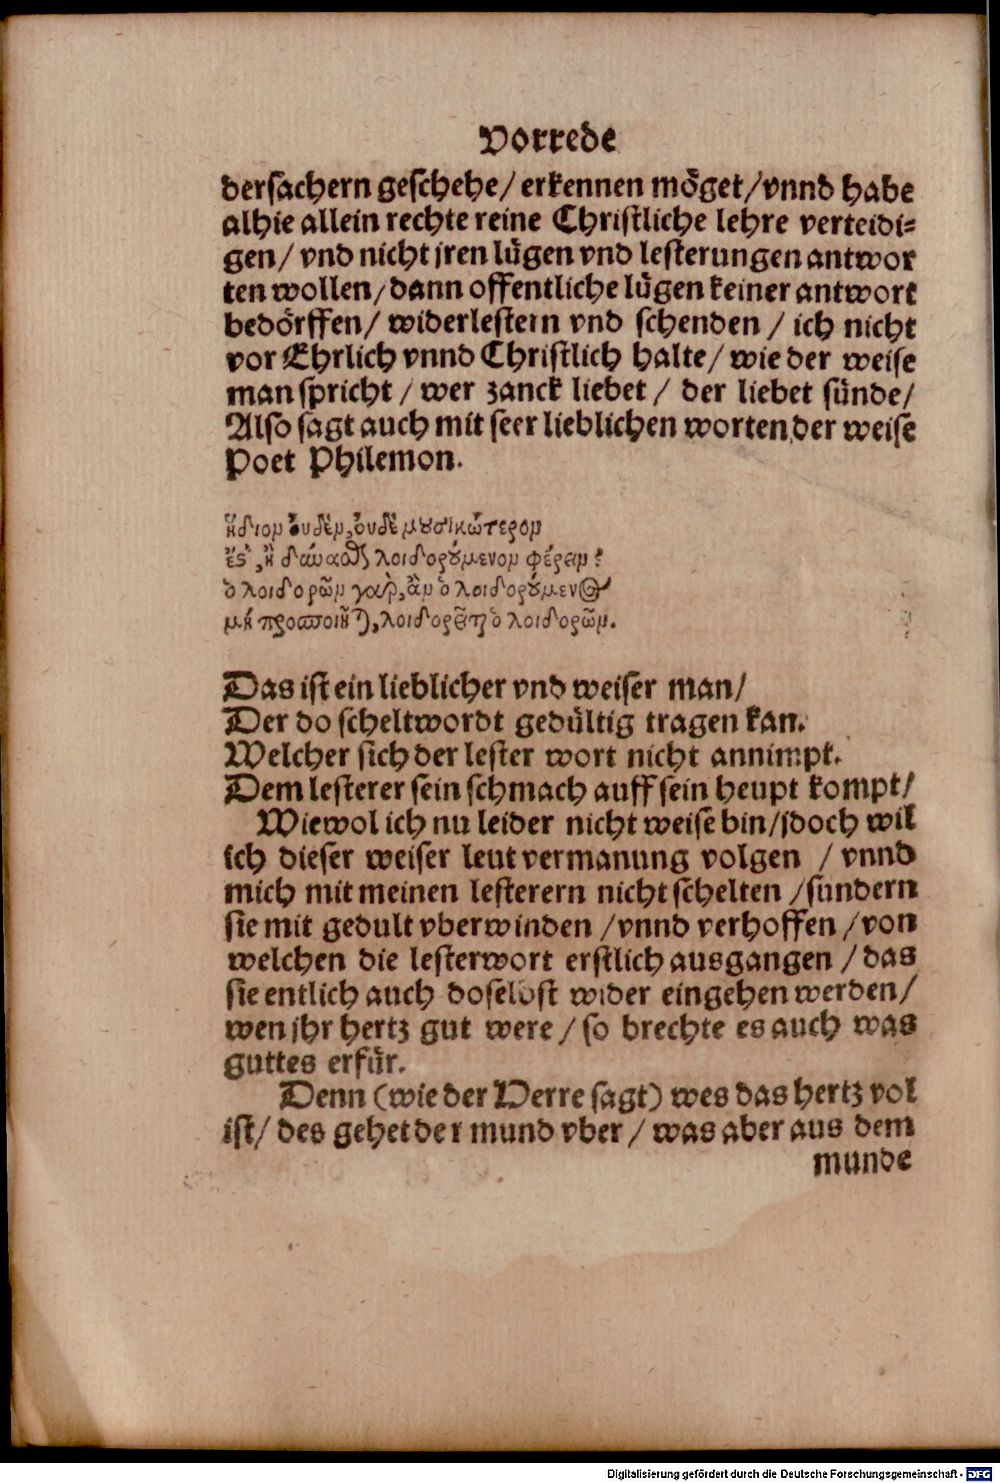 Vorrede
dersachern geschehe/ erkennen möget/vnnd habe
alhie allein rechte reine Christliche lehre verteidi=
gen/ vnd nicht jren lügen vnd lesterungen antwor
ten wollen/dann offentliche lügen keiner antwort
bedörffen/ widerlestern vnd schenden / ich nicht
vor Ehrlich vnnd Christlich halte/ wie der weise
man spricht / wer zanck liebet / der liebet sünde/
Also sagt auch mit seer lieblichen worten der weise
Poet Philemon.
ἥδιον ὀυδὲν, ὀυδὲ μουσικώτερον
ἔς', ἢ δύναθς λοιδορούμενον φέρειν:
ὁ λοιδορῶν γαρ, ἂν ὁ λοιδορούμενος
μὴ προσποιῆται, λοιδορεῖται ὁ λοιδορῶν.
Das ist ein lieblicher vnd weiser man/
Der do scheltwordt gedültig tragen kan.
Welcher sich der lester wort nicht annimpt.
Dem lesterer sein schmach auff sein heupt kompt/
Wiewol ich nu leider nicht weise bin/jdoch wil
ich dieser weiser leut vermanung volgen / vnnd
mich mit meinen lesterern nicht schelten /sundern
sie mit gedult vberwinden /vnnd verhoffen /von
welchen die lesterwort erstlich ausgangen /das
sie entlich auch doselbst wider eingehen werden/
wen jhr hertz gut were /so brechte es auch was
guttes erfür.
Denn (wie der Herre sagt) wes das hertz vol
ist/ des gehet der mund vber / was aber aus dem
munde
Digitalisierung gefördert durch die Deutsche Forschungsgemeinschaft - DFG